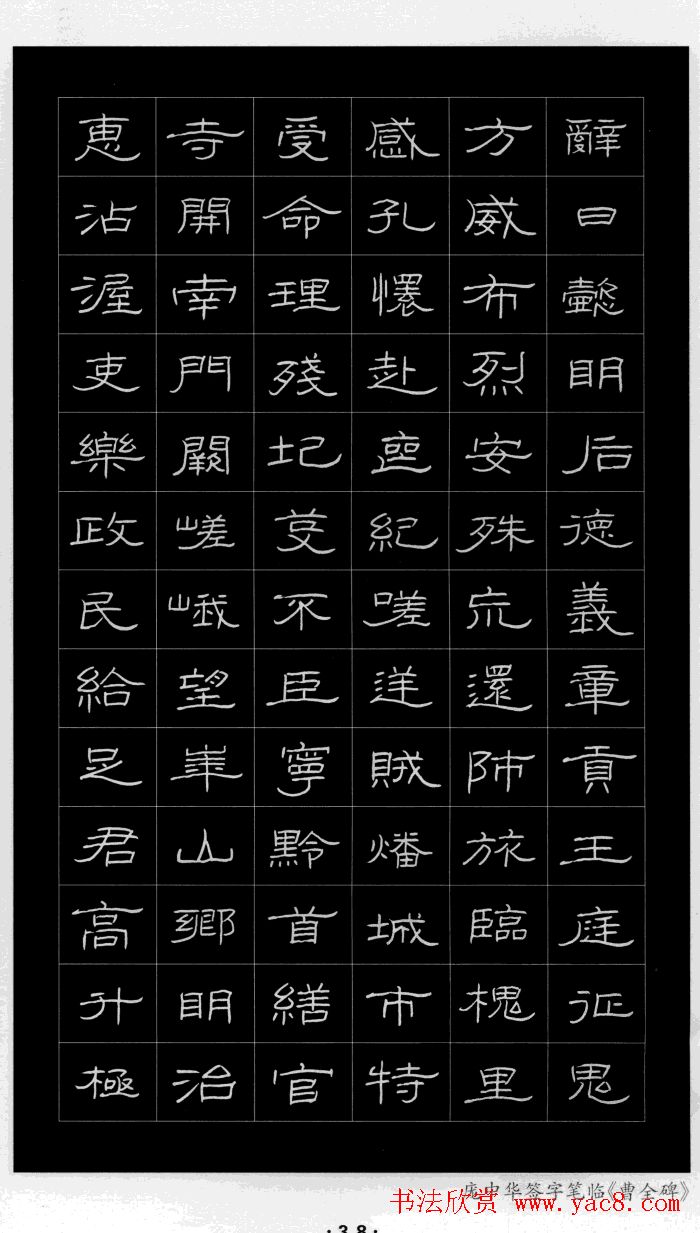 辭曰懿明后德義章貢王庭征鬼
方威布烈安殊荒還師旅臨槐里
感孔懷赴喪紀嗟逆賊燔城市特
受命理殘圮芟不臣寧黔首繕官
寺開南門闕嵯峨望華山鄉明治
惠沾渥吏樂政民給足君高升極
庞中华签字笔临《曹全碑》
书法欣赏 www.yac8.com
·38·